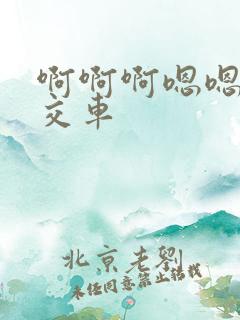 啊啊啊嗯嗯
交车
北京老劉
未经同意禁止转载